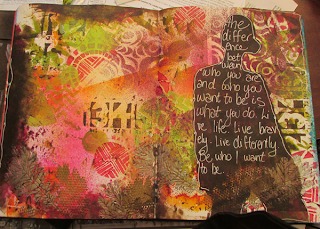 the
differ
ence
bet
ween
who you are
and who you
want to be is
what you do. Li
ve life. Live brav
ely. Live differently
Be who I want
to be.